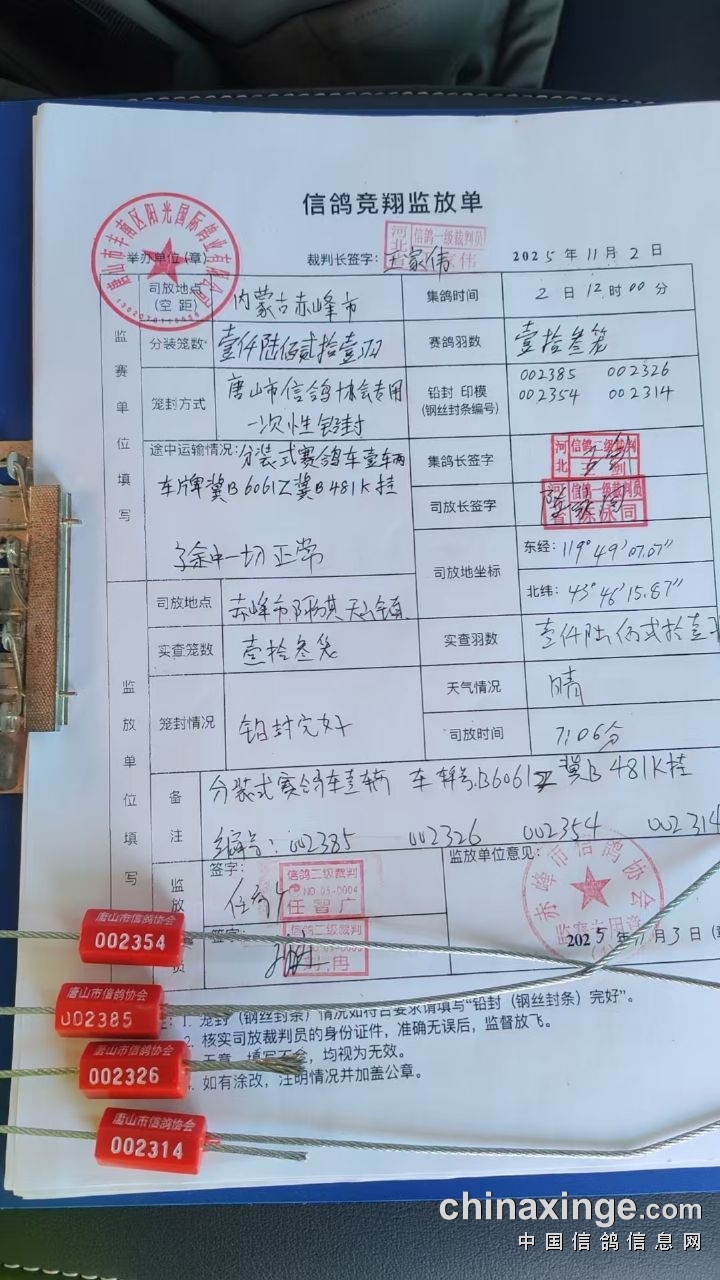 信鸽竞翔监放单
唐山市丰南区阳光国际鸽业有限公司
举办单位(章)
裁判长签字:
河北
信鸽一级裁判员
家伟
2025年11月2日
监赛单位填写
司放地点(空距)
内蒙古赤峰市
集鸽时间
2日12时00分
分装笼数
壹仟陆佰贰拾壹羽
赛鸽羽数
壹拾叁笼
笼封方式
唐山市信鸽协会专用
一次性铅封
铅封 印模
(钢丝封条编号)
002385 002326
002354 002314
途中运输情况:分装式赛鸽车壹车辆
车牌冀B6061Z冀B481K挂
途中一切正常
集鸽长签字
河北 信鸽二级裁判
司放长签字
信鸽一级裁判员
司放地坐标
东经: 119°49′07.07″
北纬: 43°46′15.87″
监放单位填写
司放地点
赤峰市阿旗天山镇
实查笼数
壹拾叁笼
实查羽数
壹仟陆佰贰拾壹羽
天气情况
晴
笼封情况
铅封完好
司放时间
7:06分
备注
分装式赛鸽车壹辆 车牌号B6061Z 冀B481K挂
编号: 002385 002326 002354 002314
签字:
信鸽二级裁判
NO 05-0004
任智广
签字:
信鸽二级裁判
冉
监放单位意见:
赤峰市信鸽协会
监赛专用章
2025年11月3日
1. 笼封(钢丝封条)情况如符合要求请填写“铅封(钢丝封条)完好”。
2. 核实司放裁判员的身份证件,准确无误后,监督放飞。
均视为无效。
4. 如有涂改,注明情况并加盖公章。
唐山市信鸽协会
002354
唐山市信鸽协会
002385
唐山市信鸽协会
002326
唐山市信鸽协会
002314
chinaxinge.com
中国信鸽信息网